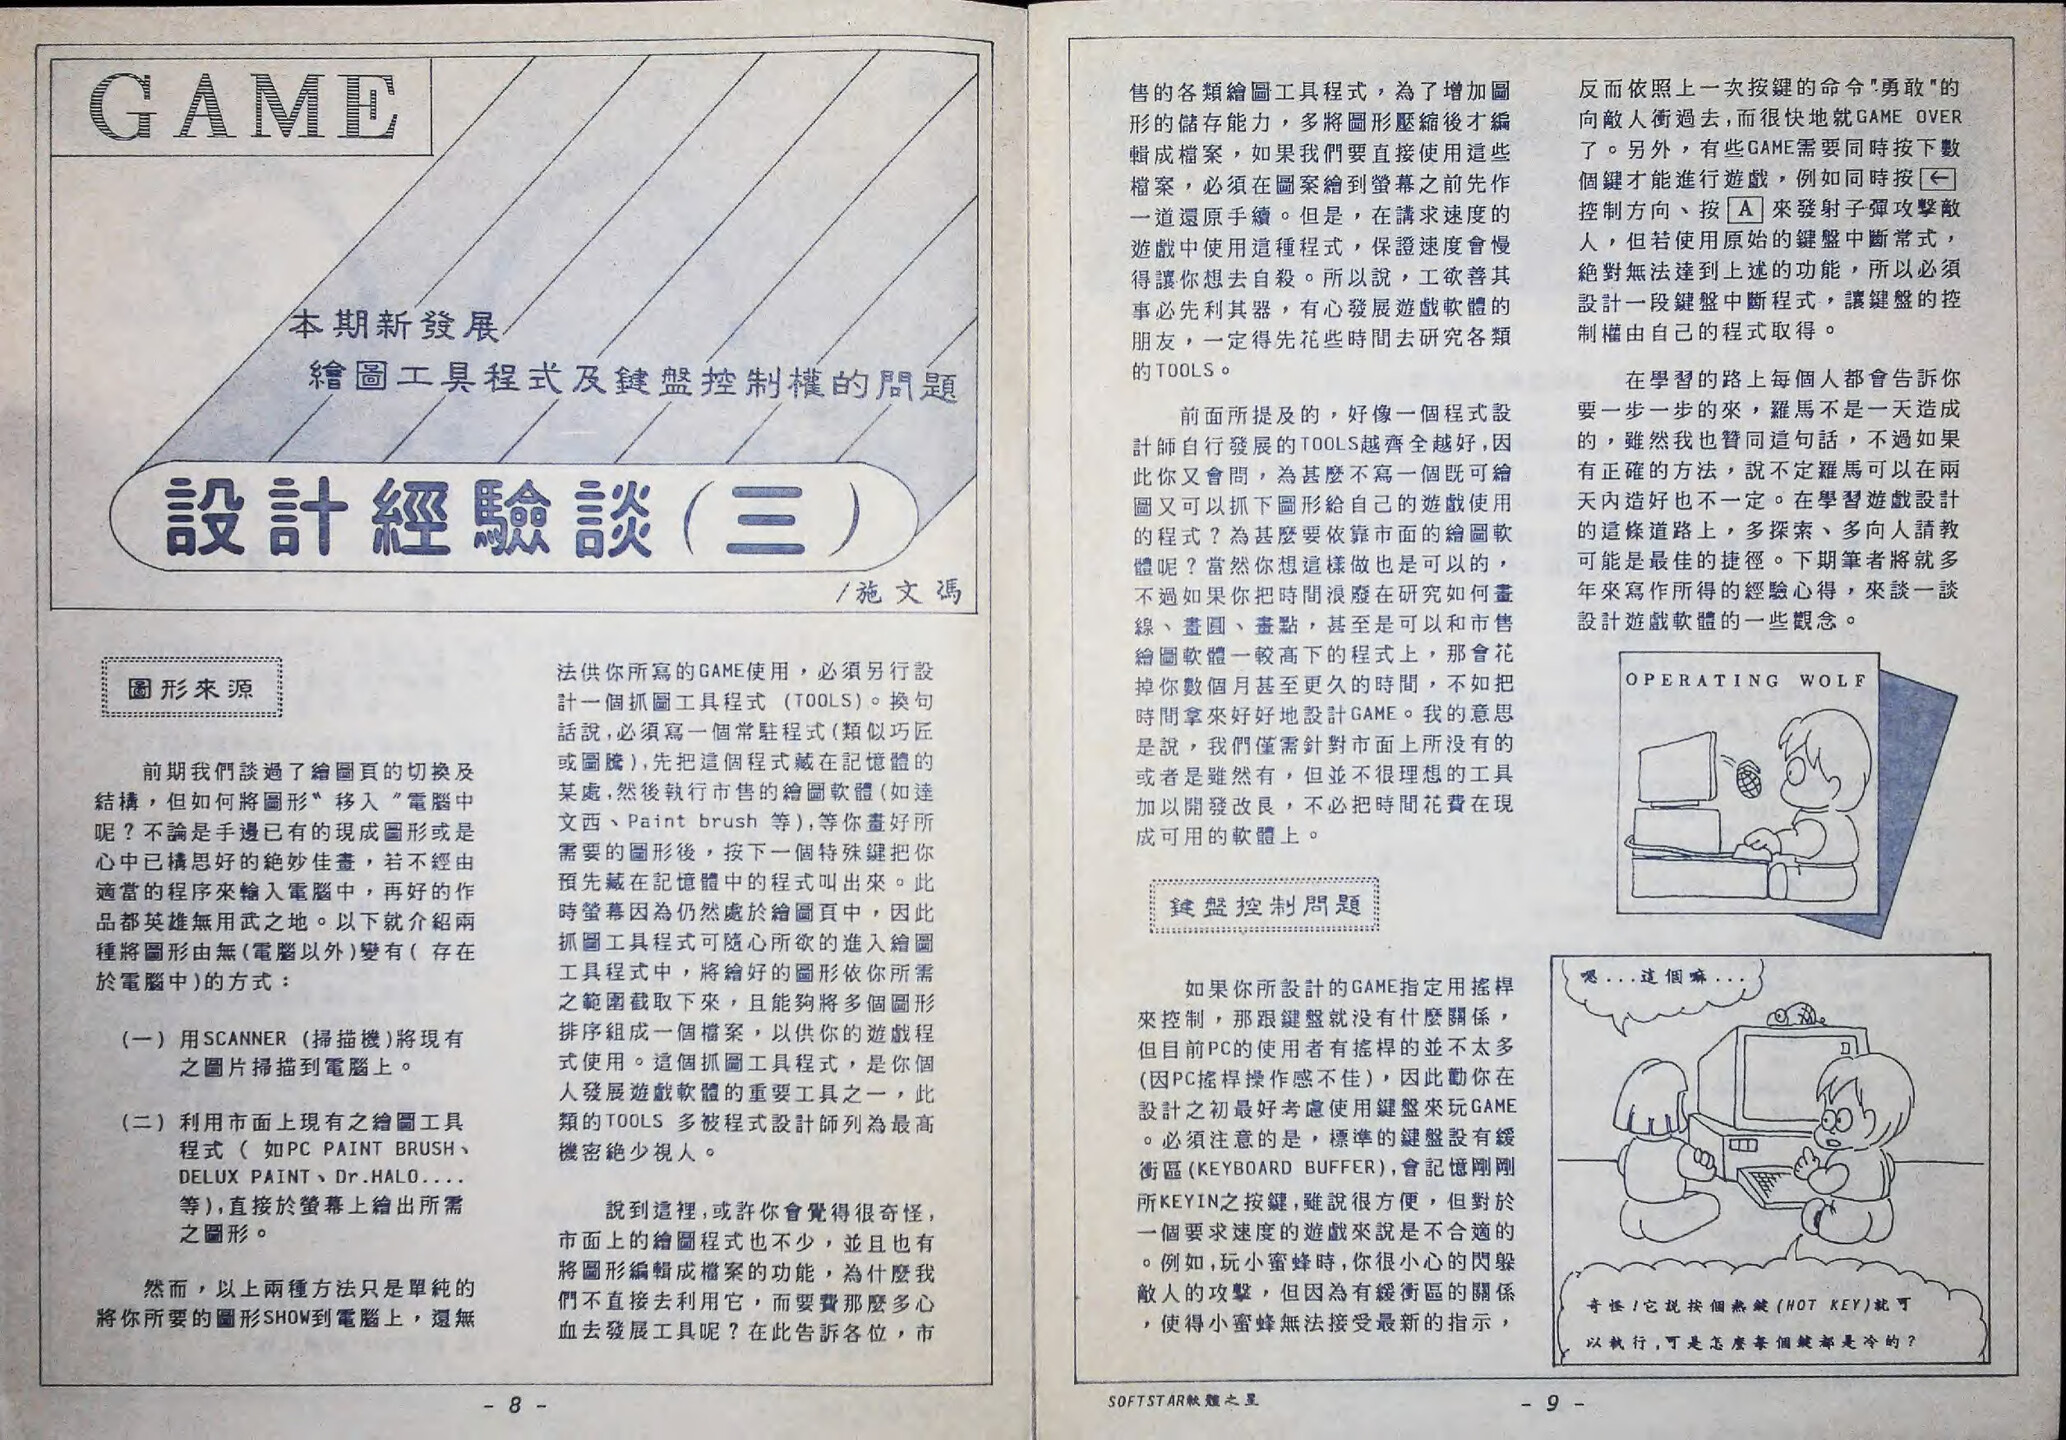 GAME
本期新發展
繪圖工具程式及鍵盤控制權的問題
設計經驗談(三)
/施文馮
圖形來源
前期我們談過了繪圖頁的切換及
結構，但如何將圖形〝移入〞電腦中
呢？不論是手邊已有的現成圖形或是
心中已構思好的絶妙佳畫，若不經由
適當的程序來輸入電腦中，再好的作
品都英雄無用武之地。以下就介紹兩
種將圖形由無(電腦以外)變有( 存在
於電腦中)的方式：
(一) 用SCANNER (掃描機)將現有
之圖片掃描到電腦上。
(二) 利用市面上現有之繪圖工具
程式 ( 如PC PAINT BRUSH、
DELUX PAINT、Dr.HALO....
等),直接於螢幕上繪出所需
之圖形。
然而，以上兩種方法只是單純的
將你所要的圖形SHOW到電腦上，還無
法供你所寫的GAME使用，必須另行設
計一個抓圖工具程式 (TOOLS)。換句
話說,必須寫一個常駐程式(類似巧匠
或圖騰),先把這個程式藏在記憶體的
某處,然後執行市售的繪圖軟體(如達
文西、Paint brush 等),等你畫好所
需要的圖形後，按下一個特殊鍵把你
預先藏在記憶體中的程式叫出來。此
時螢幕因為仍然處於繪圖頁中，因此
抓圖工具程式可隨心所欲的進入繪圖
工具程式中，將繪好的圖形依你所需
之範圍截取下來，且能夠將多個圖形
排序組成一個檔案，以供你的遊戲程
式使用。這個抓圖工具程式，是你個
人發展遊戲軟體的重要工具之一，此
類的TOOLS 多被程式設計師列為最高
機密絶少視人。
說到這裡,或許你會覺得很奇怪,
市面上的繪圖程式也不少，並且也有
將圖形編輯成檔案的功能，為什麼我
們不直接去利用它，而要費那麼多心
血去發展工具呢？在此告訴各位，市
- 8 -
售的各類繪圖工具程式，為了增加圖
形的儲存能力，多將圖形壓縮後才編
輯成檔案，如果我們要直接使用這些
檔案，必須在圖案繪到螢幕之前先作
一道還原手續。但是，在講求速度的
遊戲中使用這種程式，保證速度會慢
得讓你想去自殺。所以說，工欲善其
事必先利其器，有心發展遊戲軟體的
朋友，一定得先花些時間去研究各類
的TOOLS。
前面所提及的，好像一個程式設
計師自行發展的TOOLS越齊全越好,因
此你又會問，為甚麼不寫一個既可繪
圖又可以抓下圖形給自己的遊戲使用
的程式？為甚麼要依靠市面的繪圖軟
體呢？當然你想這樣做也是可以的，
不過如果你把時間浪廢在研究如何畫
線、畫圓、畫點，甚至是可以和市售
繪圖軟體一較高下的程式上，那會花
掉你數個月甚至更久的時間，不如把
時間拿來好好地設計GAME。我的意思
是說，我們僅需針對市面上所没有的
或者是雖然有，但並不很理想的工具
加以開發改良，不必把時間花費在現
成可用的軟體上。
鍵盤控制問題
如果你所設計的GAME指定用搖桿
來控制，那跟鍵盤就没有什麼關係，
但目前PC的使用者有搖桿的並不太多
(因PC搖桿操作感不佳)，因此勸你在
設計之初最好考慮使用鍵盤來玩GAME
。必須注意的是，標準的鍵盤設有緩
衝區(KEYBOARD BUFFER),會記憶剛剛
所KEYIN之按鍵,雖說很方便，但對於
一個要求速度的遊戲來說是不合適的
。例如,玩小蜜蜂時,你很小心的閃躲
敵人的攻擊，但因為有緩衝區的關係
，使得小蜜蜂無法接受最新的指示，
反而依照上一次按鍵的命令"勇敢"的
向敵人衝過去,而很快地就GAME OVER
了。另外，有些GAME需要同時按下數
個鍵才能進行遊戲，例如同時按 ←
控制方向、按 A 來發射子彈攻擊敵
人，但若使用原始的鍵盤中斷常式，
絶對無法達到上述的功能，所以必須
設計一段鍵盤中斷程式，讓鍵盤的控
制權由自己的程式取得。
在學習的路上每個人都會告訴你
要一步一步的來，羅馬不是一天造成
的，雖然我也贊同這句話，不過如果
有正確的方法，說不定羅馬可以在兩
天內造好也不一定。在學習遊戲設計
的這條道路上，多探索、多向人請教
可能是最佳的捷徑。下期筆者將就多
年來寫作所得的經驗心得，來談一談
設計遊戲軟體的一些觀念。
OPERATING WOLF
嗯...這個嘛...
奇怪!它說按個熱鍵(HOT KEY)就可
以執行,可是怎麼每個鍵都是冷的?
SOFTSTAR軟體之星
- 9 -